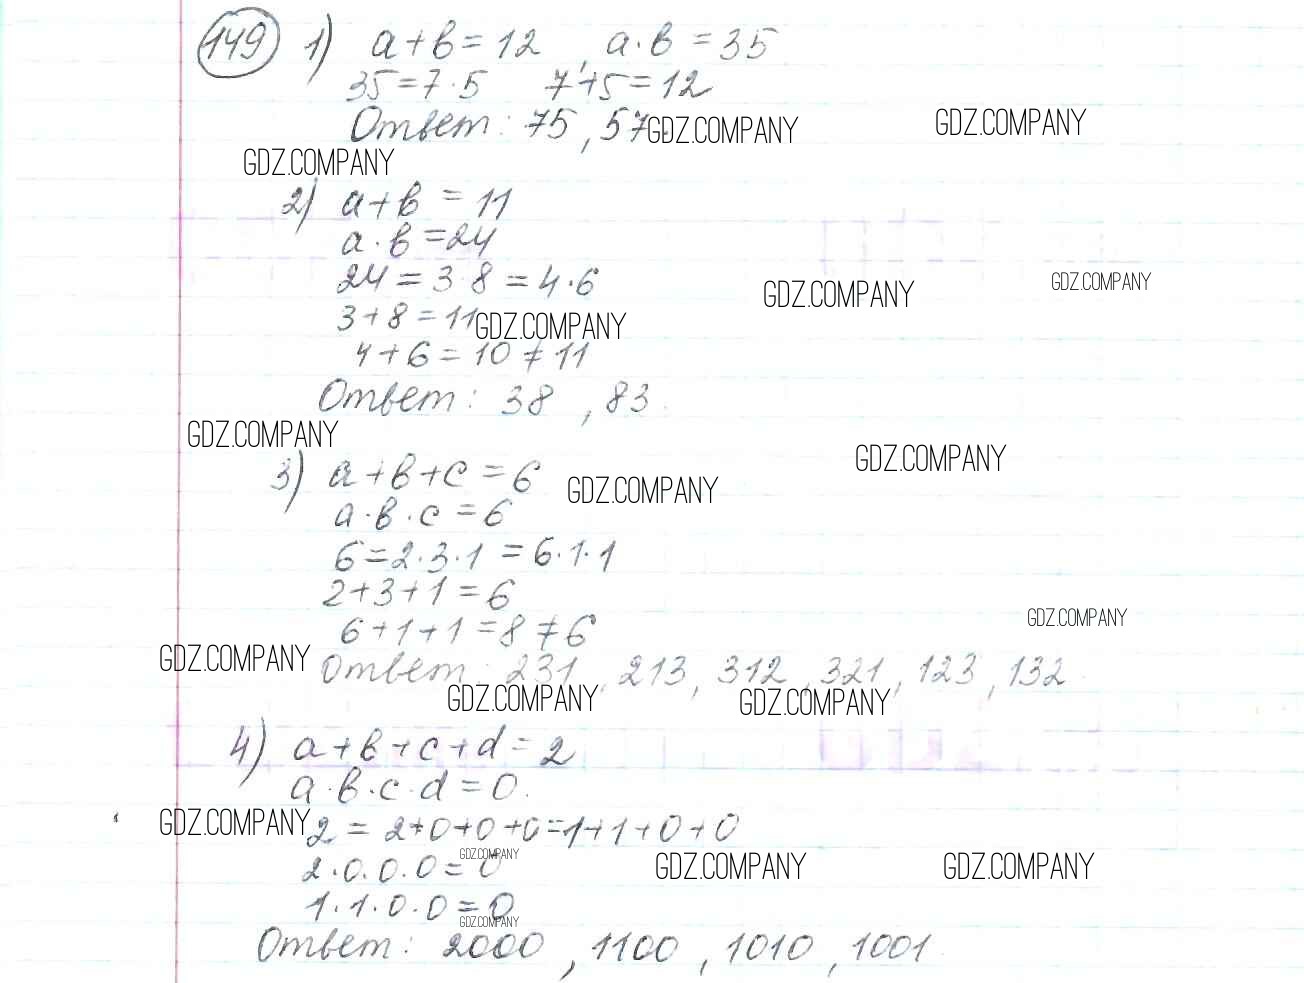 149 1) a+b=12, a·b=35
35=7·5 7+5=12
Ответ: 75, 57. GDZ.COMPANY GDZ.COMPANY
GDZ.COMPANY
2) a+b=11
a·b=24
24=3·8=4·6 GDZ.COMPANY GDZ.COMPANY
3+8=11 GDZ.COMPANY
4+6=10≠11
Ответ: 38, 83.
GDZ.COMPANY GDZ.COMPANY
3) a+b+c=6 GDZ.COMPANY
a·b·c=6
6=2·3·1=6·1·1
2+3+1=6 GDZ.COMPANY
6+1+1=8≠6
GDZ.COMPANY Ответ: 231, 213, 312, 321, 123, 132.
GDZ.COMPANY GDZ.COMPANY
4) a+b+c+d=2
a·b·c·d=0.
GDZ.COMPANY 2=2+0+0+0=1+1+0+0
GDZ.COMPANY
2·0·0·0=0 GDZ.COMPANY GDZ.COMPANY
1·1·0·0=0
GDZ.COMPANY
Ответ: 2000, 1100, 1010, 1001